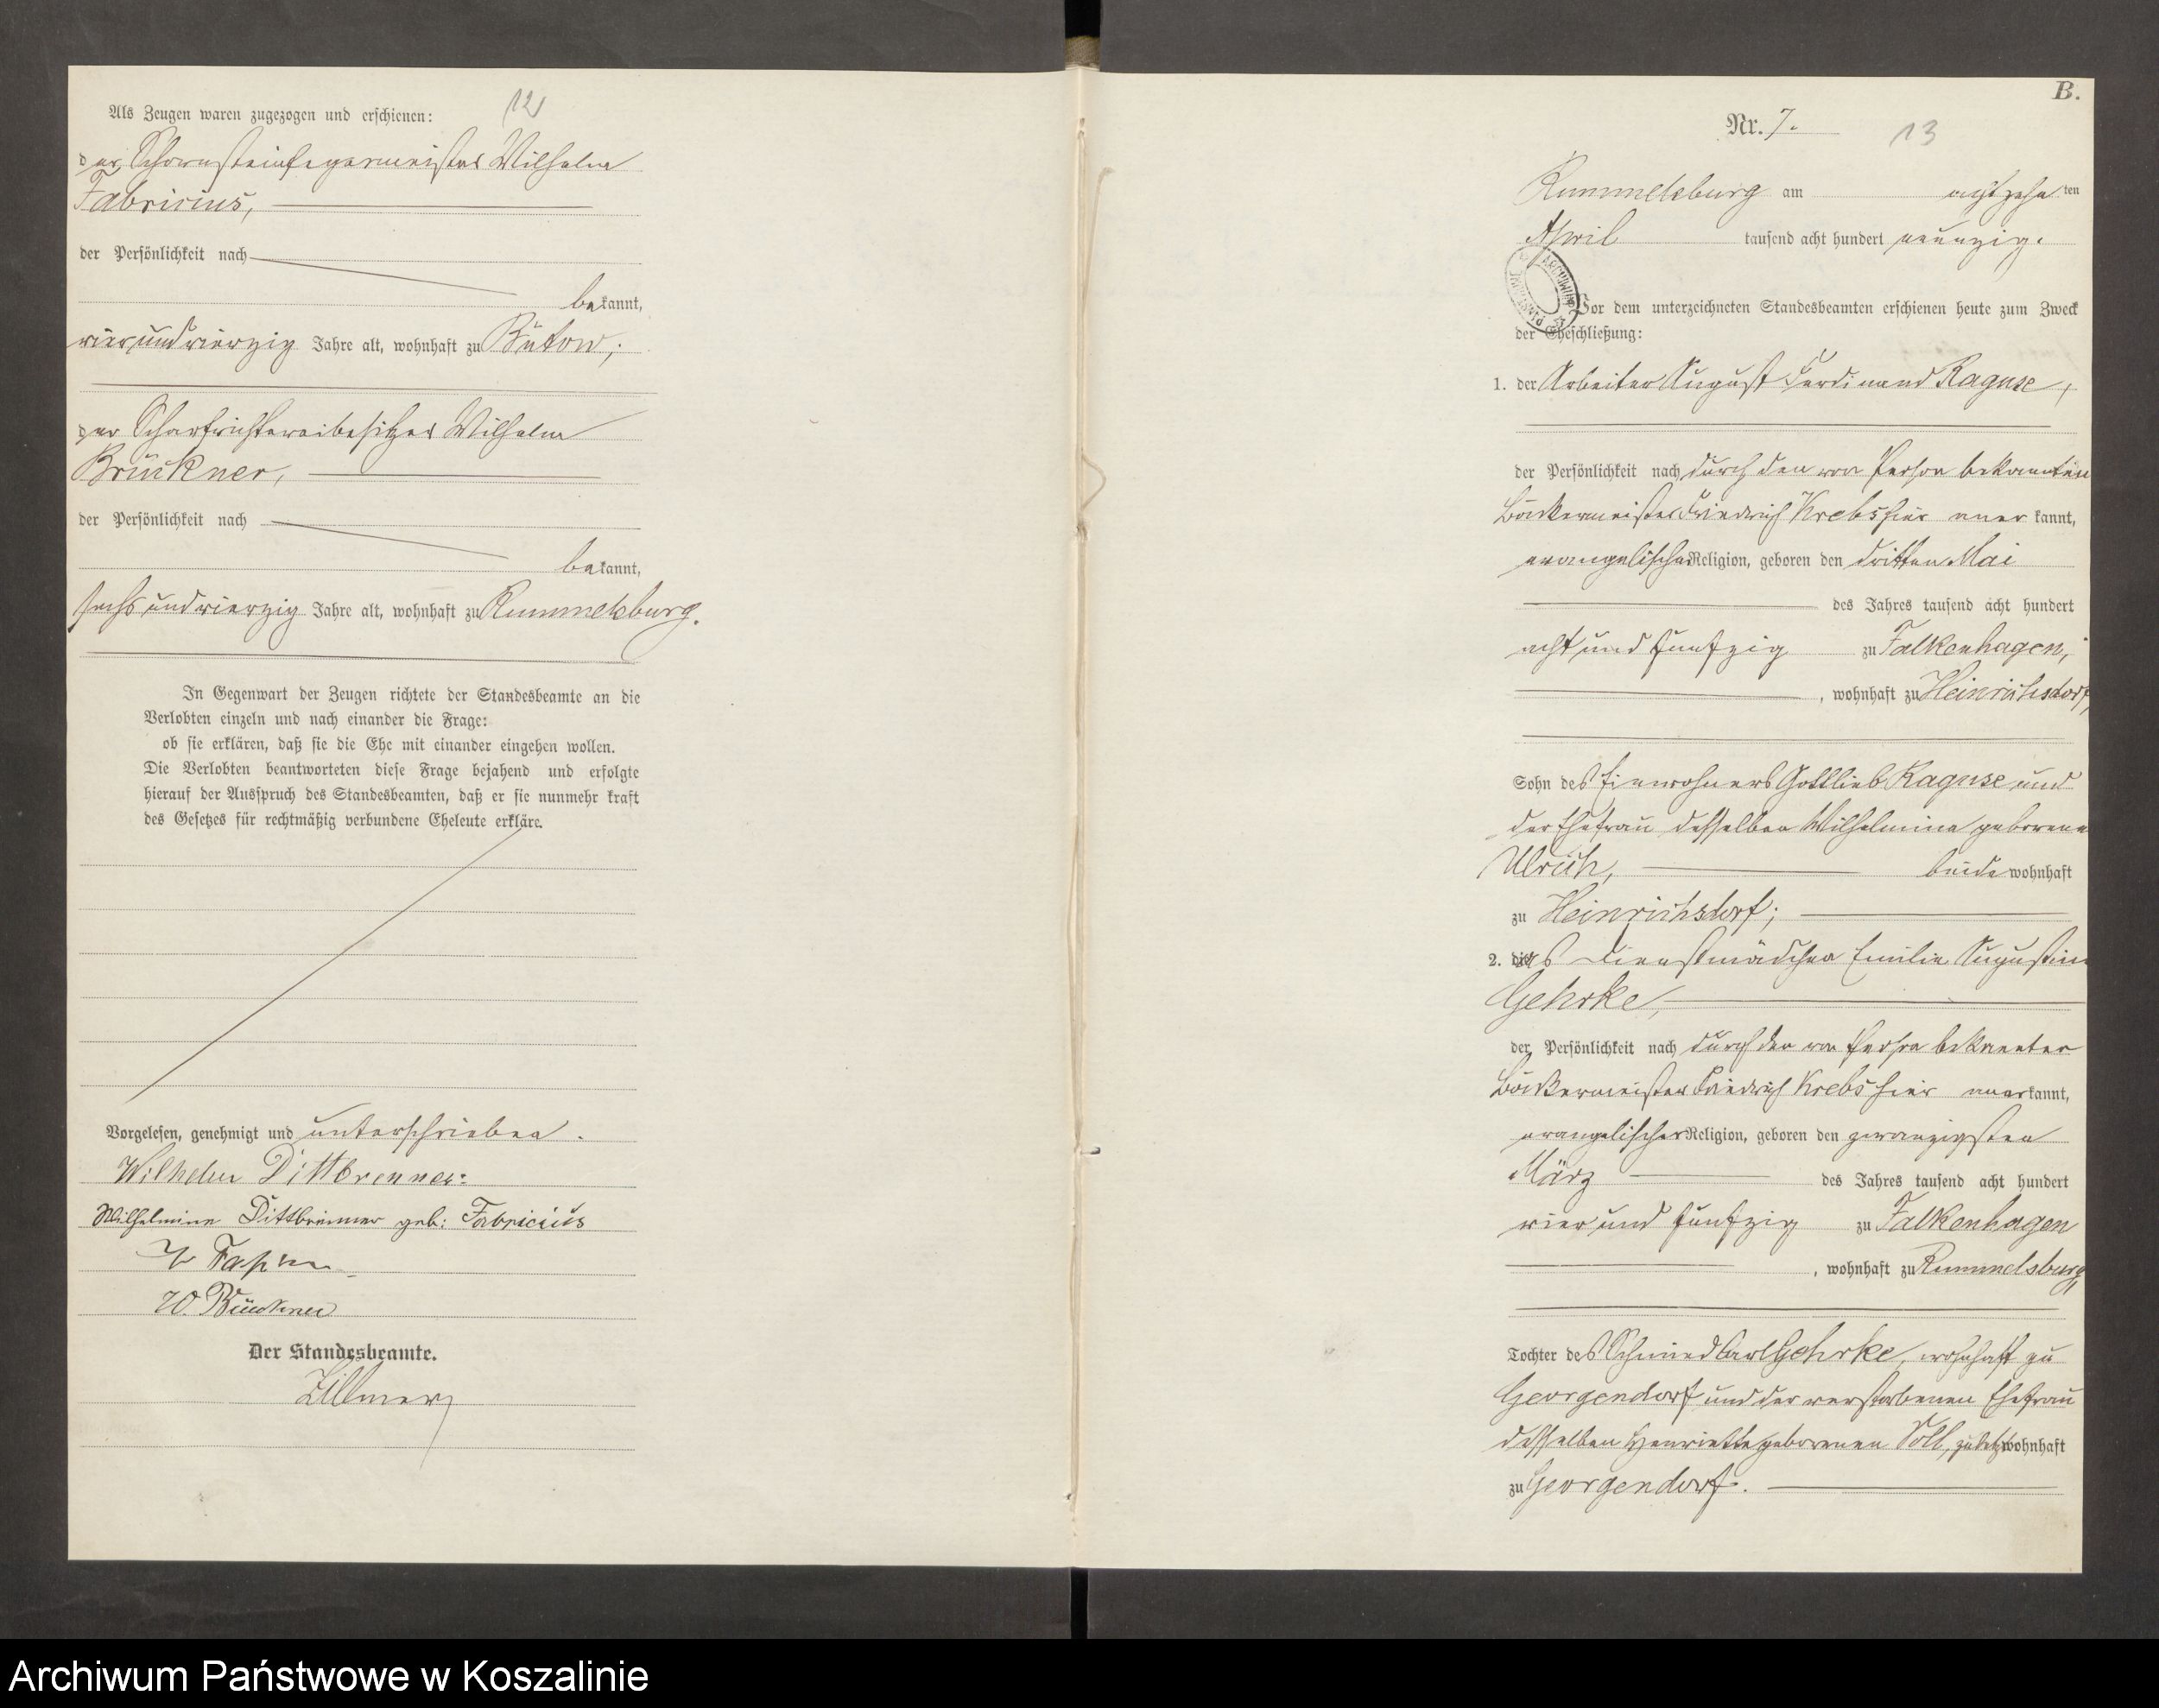 12
Als Zeugen waren zugezogen und erschienen:
der Schornsteinfegermeister Wilhelm
Fabricius,
der Persönlichkeit nach
bekannt,
vierundvierzig Jahre alt, wohnhaft zu Bütow;
der Scharfrichtereibesitzer Wilhelm
Brückner,
der Persönlichkeit nach
bekannt,
sechsundvierzig Jahre alt, wohnhaft zu Rummelsburg.
In Gegenwart der Zeugen richtete der Standesbeamte an die
Verlobten einzeln und nach einander die Frage:
ob sie erklären, daß sie die Ehe mit einander eingehen wollen.
Die Verlobten beantworteten diese Frage bejahend und erfolgte
hierauf der Ausspruch des Standesbeamten, daß er sie nunmehr kraft
des Gesetzes für rechtmäßig verbundene Eheleute erkläre.
Vorgelesen, genehmigt und unterschrieben.
Wilhelm Dittbrenner
Wilhelmine Dittbrenner geb: Fabricius
W. Brückner
Der Standesbeamte.
Zillmer
B.
Nr. 7.
13
Rummelsburg am achtzehnten
April tausend acht hundert neunzig.
Vor dem unterzeichneten Standesbeamten erschienen heute zum Zweck
der Eheschließung:
1. der Arbeiter August Ferdinand Raguse,
der Persönlichkeit nach durch den von Person bekannten
Bäckermeister Friedrich Krebs hier anerkannt,
evangelischer Religion, geboren den dritten Mai
des Jahres tausend acht hundert
acht und fünfzig zu Falkenhagen,
, wohnhaft zu Heinrichsdorf,
Sohn des Einwohners Gottlieb Raguse und
der Ehefrau desselben Wilhelmine geborene
Ulrich, beide wohnhaft
zu Heinrichsdorf;
2. das Dienstmädchen Emilie Augustine
Gehrke,
der Persönlichkeit nach durch den von Person bekannten
Bäckermeister Friedrich Krebs hier anerkannt,
evangelischer Religion, geboren den zwanzigsten
März des Jahres tausend acht hundert
vier und fünfzig zu Falkenhagen
, wohnhaft zu Rummelsburg,
Tochter des Schmied Carl Gehrke, wohnhaft zu
Georgendorf und der verstorbenen Ehefrau
desselben Henriette geborenen Voll, zuletzt wohnhaft
zu Georgendorf.
Archiwum Państwowe w Koszalinie